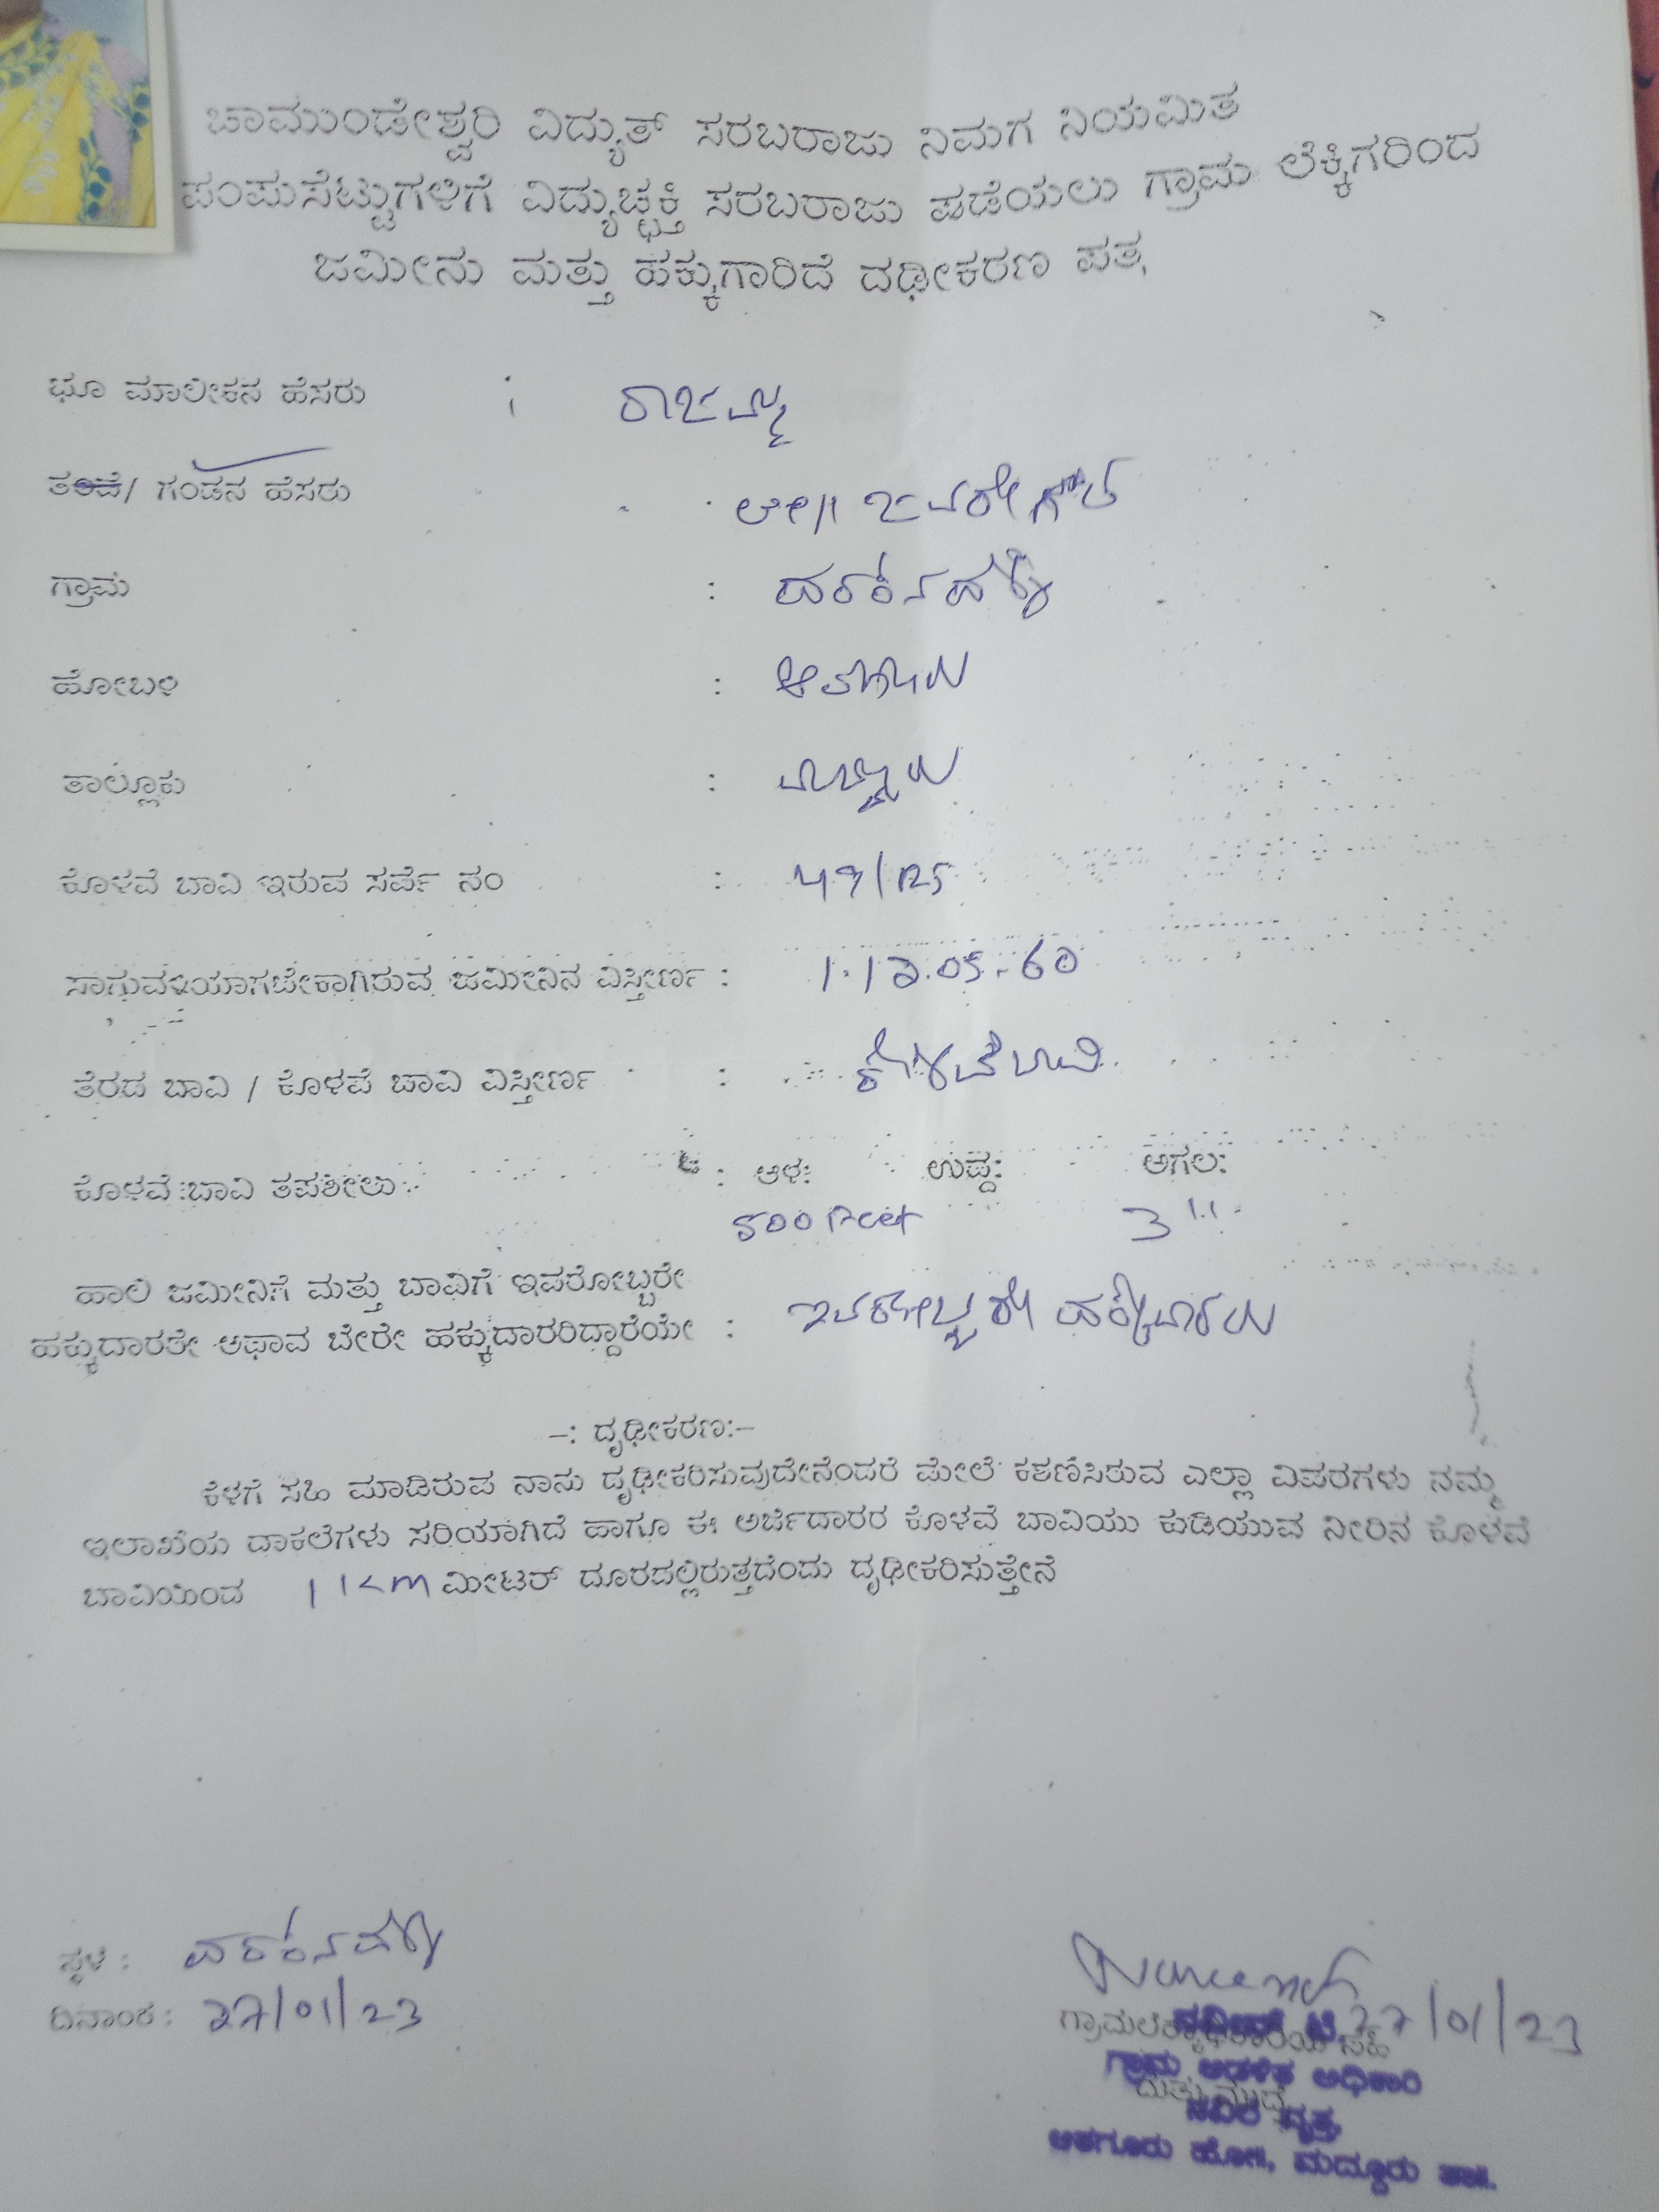 ಚಾಮುಂಡೇಶ್ವರಿ ವಿದ್ಯುತ್ ಸರಬರಾಜು ನಿಮಗ ನಿಯಮಿತ
ಪಂಪುಸೆಟ್ಟುಗಳಿಗೆ ವಿದ್ಯುಚ್ಛಕ್ತಿ ಸರಬರಾಜು ಪಡೆಯಲು ಗ್ರಾಮ ಲೆಕ್ಕಿಗರಿಂದ
ಜಮೀನು ಮತ್ತು ಹಕ್ಕುಗಾರಿದೆ ದಢೀಕರಣ ಪತ್ರ
ಭೂ ಮಾಲೀಕನ ಹೆಸರು : ರಾಜಮ್ಮ
ತಂದೆ/ ಗಂಡನ ಹೆಸರು : ಲೇ|| ಜವರೇಗೌಡ
ಗ್ರಾಮ :
ಹೋಬಳಿ :
ತಾಲ್ಲೂಕು :
ಕೊಳವೆ ಬಾವಿ ಇರುವ ಸರ್ವೆ ನಂ :
ಸಾಗುವಳಿಯಾಗಬೇಕಾಗಿರುವ ಜಮೀನಿನ ವಿಸ್ತೀರ್ಣ : 1.12.05.60
ತೆರದ ಬಾವಿ / ಕೊಳವೆ ಬಾವಿ ವಿಸ್ತೀರ್ಣ : ಕೊಳವೆ ಬಾವಿ
ಕೊಳವೆ ಬಾವಿ ತಪಶೀಲು : ಆಳ: ಉದ್ದ: ಅಗಲ:
500 Feet 3"
ಹಾಲಿ ಜಮೀನಿಗೆ ಮತ್ತು ಬಾವಿಗೆ ಇವರೋಬ್ಬರೇ
ಹಕ್ಕುದಾರತೇ ಅಥಾವ ಬೇರೇ ಹಕ್ಕುದಾರರಿದ್ದಾರೆಯೇ : ಇವರೊಬ್ಬರೇ ಹಕ್ಕುದಾರರು
–: ದೃಢೀಕರಣ:–
ಕೆಳಗೆ ಸಹಿ ಮಾಡಿರುವ ನಾನು ದೃಢೀಕರಿಸುವುದೇನೆಂದರೆ ಮೇಲೆ ಕಾಣಿಸಿರುವ ಎಲ್ಲಾ ವಿವರಗಳು ನಮ್ಮ
ಇಲಾಖೆಯ ದಾಕಲೆಗಳು ಸರಿಯಾಗಿದೆ ಹಾಗೂ ಈ ಅರ್ಜಿದಾರರ ಕೊಳವೆ ಬಾವಿಯು ಕುಡಿಯುವ ನೀರಿನ ಕೊಳವೆ
ಬಾವಿಯಿಂದ 1 Km ಮೀಟರ್ ದೂರದಲ್ಲಿರುತ್ತದೆಂದು ದೃಢೀಕರಿಸುತ್ತೇನೆ
ಸ್ಥಳ :
ದಿನಾಂಕ : 27/01/23
27/01/23
ಗ್ರಾಮ ಆಡಳಿತ ಅಧಿಕಾರಿ
ವೃತ್ತ,
ಆತಗೂರು ಹೋ||, ಮದ್ದೂರು ತಾ||.